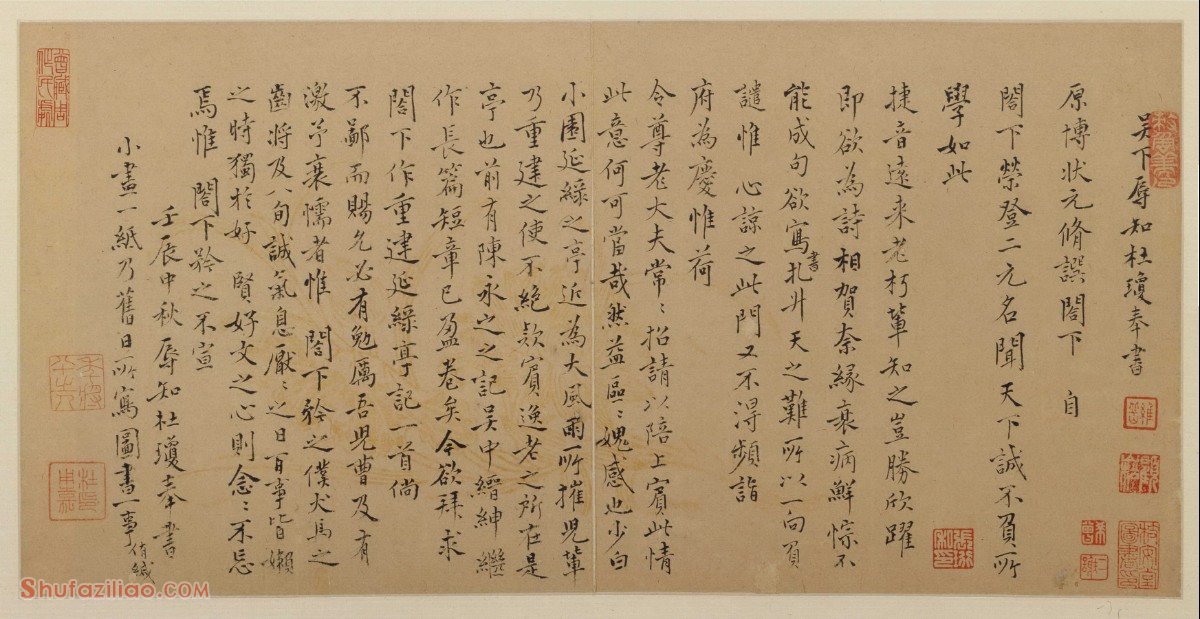 吳下辱知杜瓊奉書
原博狀元脩譔閣下 自
閣下榮登二元名聞天下誠不負所
學如此
捷音遠來老朽輩知之豈勝欣躍
即欲為詩相賀奈緣衰病鮮悰不
能成句欲寫書扎升天之難所以一向負
譴惟 心諒之此門又不得頻詣
府為慶惟荷
令尊老大夫常〻招請以陪上賓此情
此意何可當哉然益區〻媿感也少白
小園延綠之亭近為大風雨所摧兒輩
乃重建之使不絕欵賓逸老之所在是
亭也前有陳永之之記吳中縉紳繼
作長篇短章已盈卷矣今欲拜求
閣下作重建延綠亭記一首倘
不鄙而賜允必有勉厲吾兒曹及有
激予衰懦者惟 閣下矜之僕犬馬之
齒將及八旬誠氣息厭〻之日百事皆嬾
之時獨於好 賢好文之心則念〻不忘
焉惟 閣下矜之不宣
壬辰中秋辱知杜瓊奉書
小畫一紙乃舊日所寫圖書一事侑緘
Shufaziliao.COM